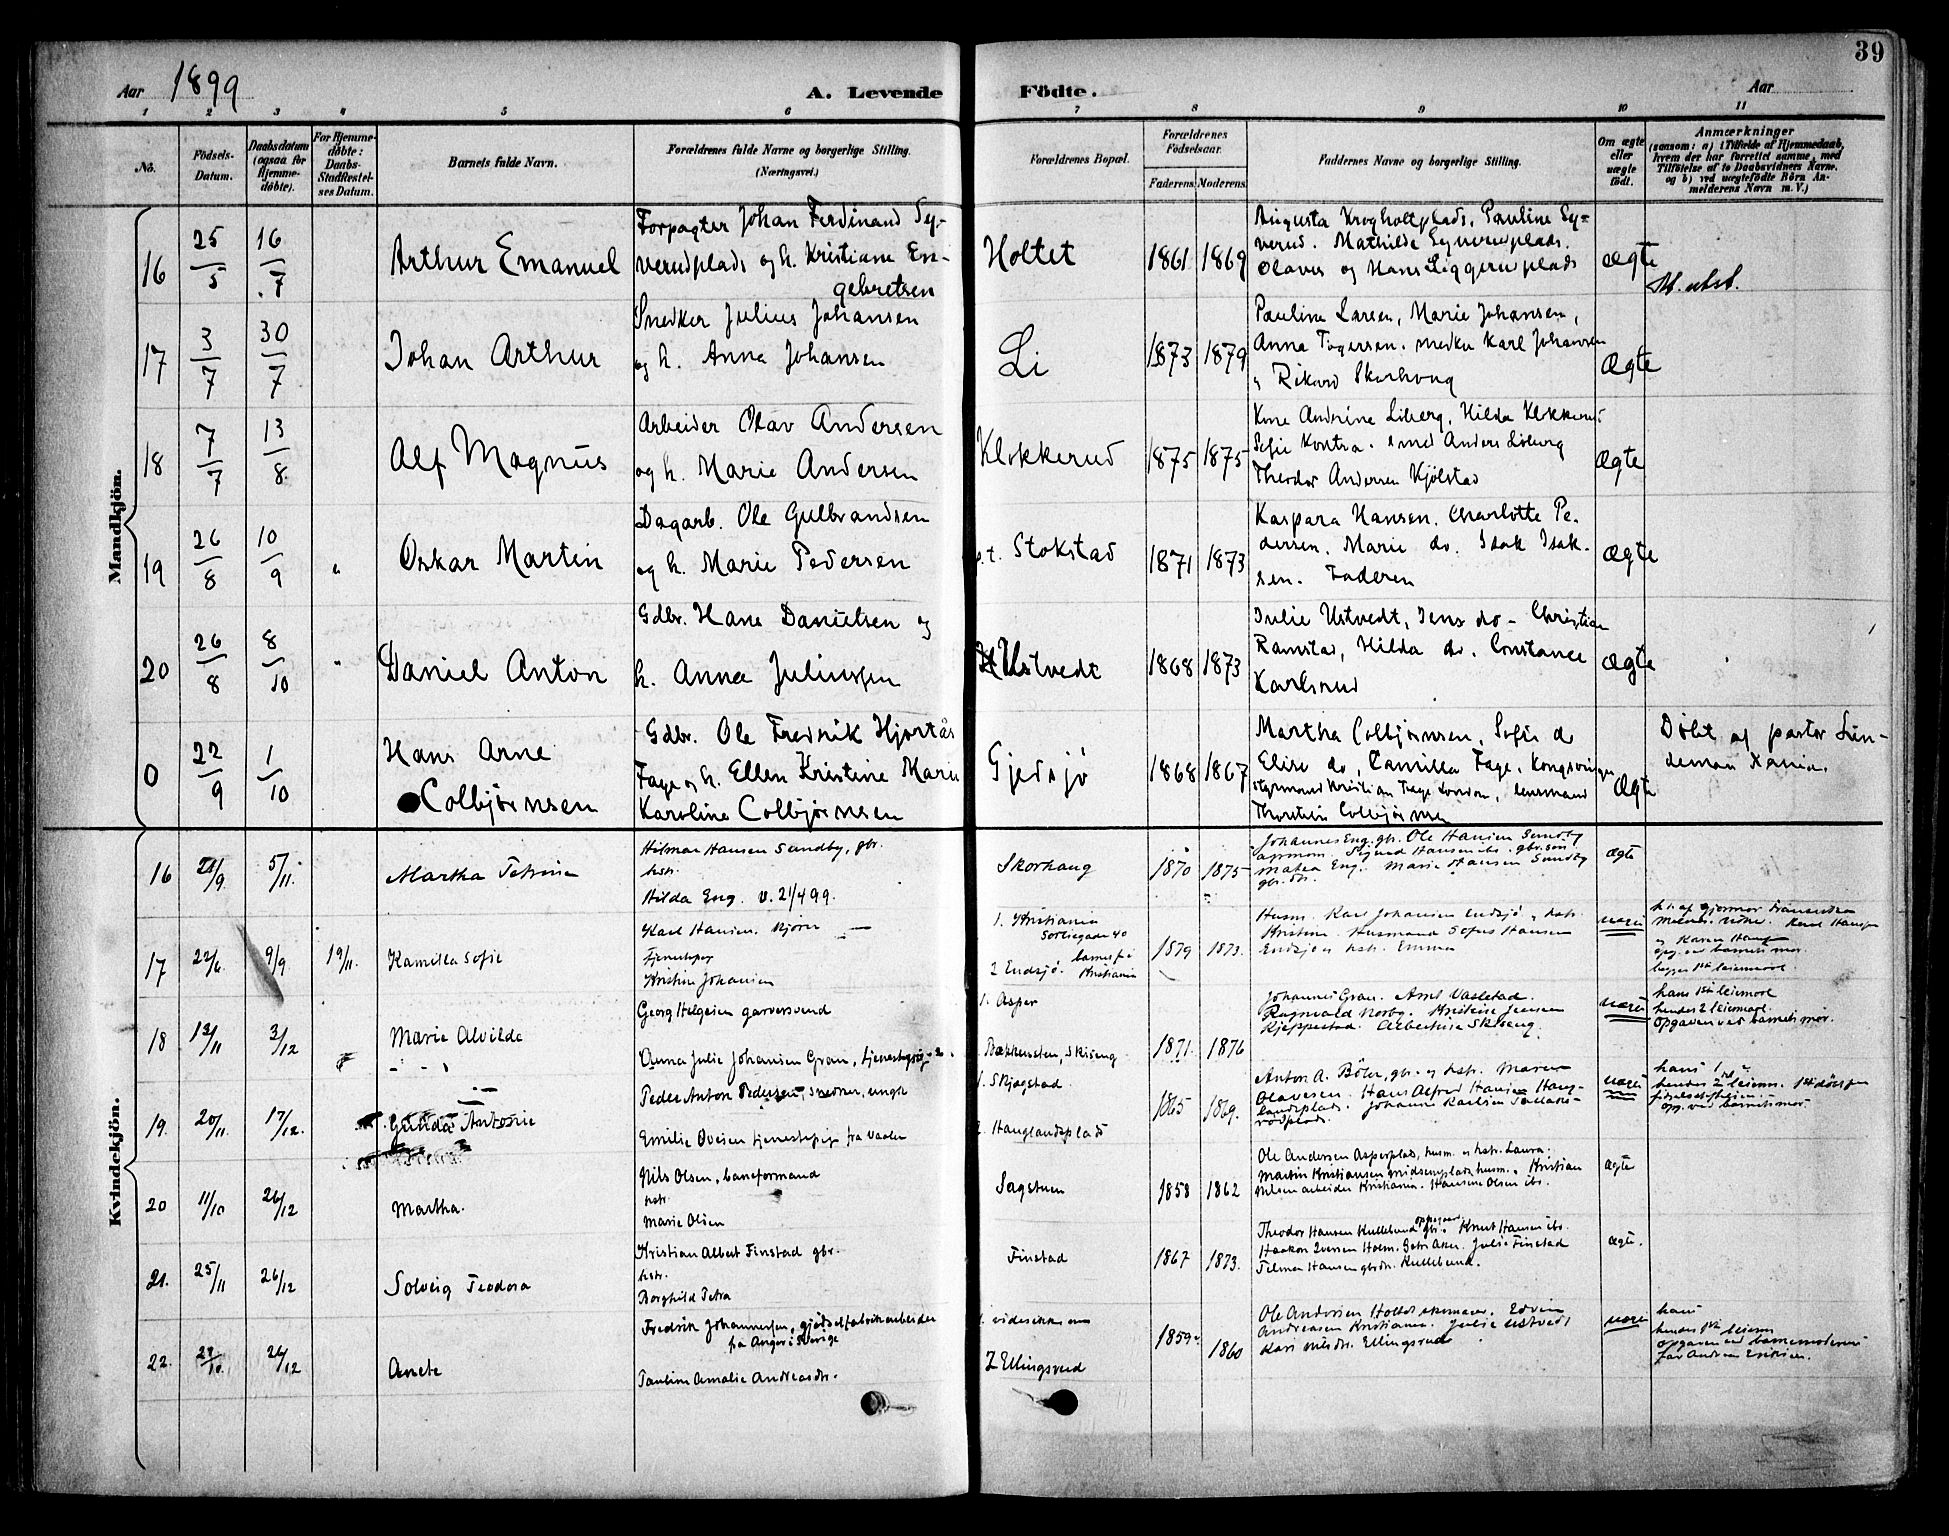 39
Aar 1899
A. Levende Födte.
Aar
1 2 3 4 5 6 7 8 9 10 11
No.
Födsels-
Datum.
Daabsdatum
(ogsaa for
Hjemme-
döbte).
For Hjemme-
döbte:
Daabs-
Stadfæstel-
ses Datum.
Barnets fulde Navn.
Forældrenes fulde Navne og borgerlige Stilling.
(Næringsvei.)
Forældrenes Bopæl.
Forældrenes
Födselsaar.
Faderens Moderens
Faddernes Navne og borgerlige Stilling.
Om ægte
eller
uægte
födt.
Anmærkninger
(saasom: a) i Tilfælde af Hjemmedaab,
hvem der har forrettet samme, med
Tilföielse af to Daabsvidners Navne,
og b) ved uægtefödte Börn An-
melderens Navn m. V.)
Mandkjön.
16 25/5 16/7 Arthur Emanuel
Forpagter Johan Ferdinand Sy-
verudplads og h. Kristiane En-
gebretsen
Holtet 1861 1869
Augusta Krogholtplads, Pauline Sy-
verud. Mathilde Syverudplads.
Olaves og Hans Liggerudplads
ægte
17 3/7 30/7 Johan Arthur
Snedker Julius Johansen
og h. Anna Johansen
Li 1873 1879
Pauline Larsen, Marie Johansen,
Anna Togersen. snedker Karl Johansen
Rikard Skorhoug
Ægte
18 7/7 13/8 Alf Magnus
Arbeider Olav Andersen
og h. Marie Andersen
Klokkerud 1875 1875
Kone Andrine Liberg, Hilda Klokkerud
Sofie Kontra. smed Anders Liberg
Theodor Andersen Kjölstad
Ægte
19 26/8 10/9 " Oskar Martin
Dagarb. Ole Gulbrandsen
og h. Marie Pedersen
p.t. Stokstad 1871 1873
Kaspara Hansen. Charlotte Pe-
dersen. Marie do. Isak Isak-
sen. Faderen
ægte
20 26/8 8/10 " Daniel Anton
Gdbr. Hans Danielsen og
h. Anna Juliussen
Ustvedt 1868 1873
Julie Ustvedt, Jens do - Christian
Ramstad, Hilda do. Constance
Karlsrud
ægte
0 22/9 1/10 Hans Arne
Colbjörnsen
Gdbr. Ole Fredrik Hjortås
Fage og h. Ellen Kristine Marie
Karoline Colbjörnsen
Gjedsjö 1868 1867
Martha Colbjörnsen, Sofie do
Elise do, Camilla Fage, Kongsvinger
styrmand Kristian Fage London, lensmand
Thorstein Colbjörnsen
Ægte
Döbt af pastor Lin-
deman Xania.
Kvindekjön.
16 5/11. Martha Petrine
Hilmar Hansen Sundby, gbr.
hstr.
Hilda Eng. v. 21/4 99.
Skorhaug 1870 1875
Johannes Eng. gbr. Ole Hansen Sundby
Sigurd Hansen ibs. gbr.sön
Matea Eng. Marie Hansen Sundby
gbr.dtr.
ægte
17 22/6. 9/9 19/11. Kamilla Sofie
Karl Hansen.
Tjenestepige
Kristine Johansen
1. Kristiania
Sorliegaden 40
2 Endsjö. barnet fi
Kristiania
1879 1873.
Husm. Karl Johansen Endsjö, hstr.
Kristine. Husmand Sofus Hansen
Endsjö og hstr. Emma
uægte
opg. ved barnets mor.
begges 1ste leiermaal.
18 13/11 3/12 Marie Alvilde
Georg Helgesen garversvend
Anna Julie Johansen Gran, tjenestepige
1. Asper
Bækkensten, Skiseng
1871. 1876
Johannes Gran. Aml Vasletad.
Ragnvald Norby. Kristine Jensen
Kjeppestad. Albertine Skiseng.
uægte
hans 1ste leiermaal
hendes 2 leiermaal.
opgaven ved barnets mor.
19. 20/11. 17/12. Gunda Antonie
Peder Anton Pedersen, snedker, ungk
Emilie Ovesen tjenestepige fra Vaaler
1. Skjøgstad.
2. Hauglandsplads
1865 1869.
Anton A. Böler, gbr. og hstr. Maren
Olavesen. Hans Alfred Hansen Haug-
landsplads. Johanne Karlsen
uægte
hans 1
hendes 2 leierm.
opg. ved barnets mor.
20 11/10 26/12 Martha.
Nils Olsen, baneformand
hstr.
Marie Olsen
Sagstuen 1858 1862
Ole Andersen Asperplads, husm. og hstr. Laura.
Martin Kristiansen husm. Kristian
Nilsen arbeider Kristiania. Hansine Olsen ibs.
ægte
21. 25/11 26/12 Solveig Teodora
Kristian Albert Finstad gbr.
hstr.
Borghild Petra
Finstad 1867 1873.
Theodor Hansen Kullebund gbr. oppegaard. Knut Hansen ibs.
Haakon Iversen Holm. Aker. Julie Finstad
Tilman Hansen gbrdtr. Kullebund.
ægte.
22. 26/12 Anete
Fredrik Johannesen, gjødselfabrikarbeider
fra Anger i Sverige
Pauline Amalie Andreasdtr.
1. vides ikke
2 Ellingsrud
1859. 1860
Ole Andersen Holtet skomager. Edvin
Andreasen Kristiania. Julie Ustvedt
Kari Nilsdtr. Ellingsrud
uægte
hans
hendes 1ste leierm
opgaven ved barnemoderens
far Andreas Eriksen.